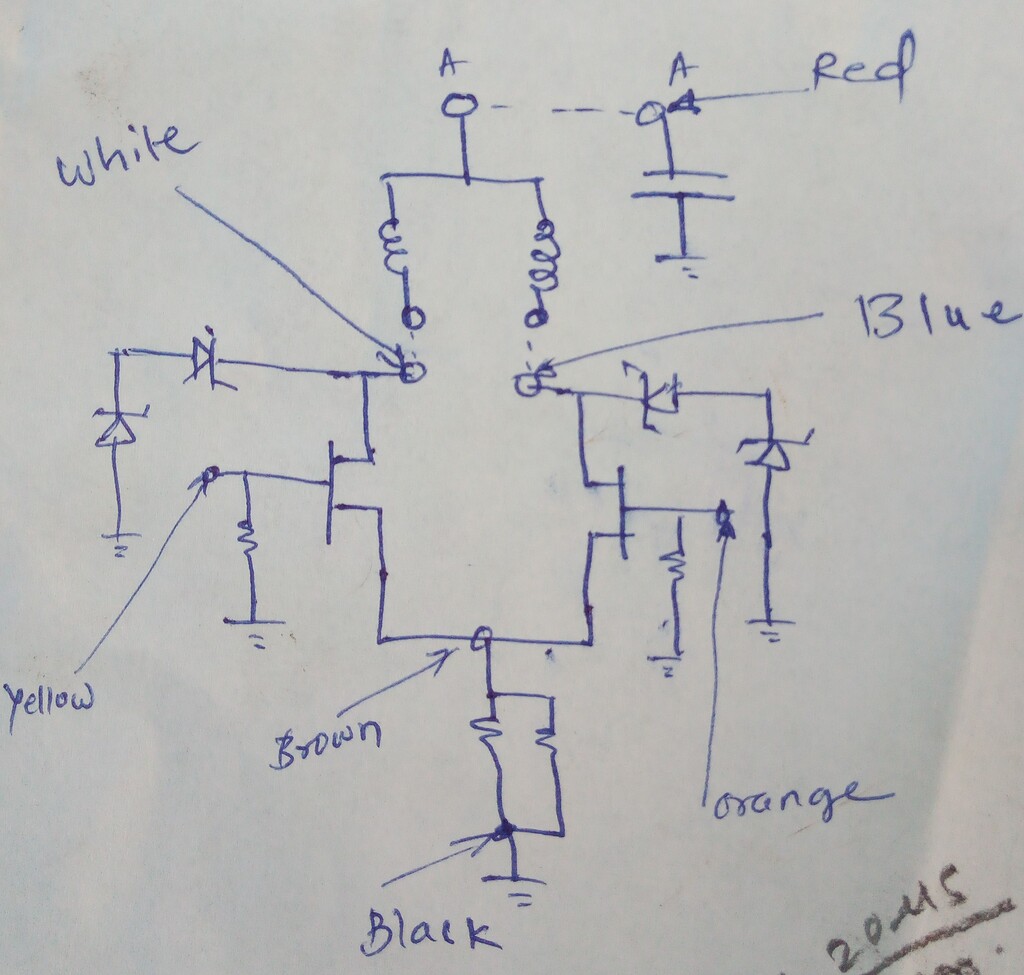 A
A
Red
White
Blue
Yellow
Brown
orange
Black
20 µs